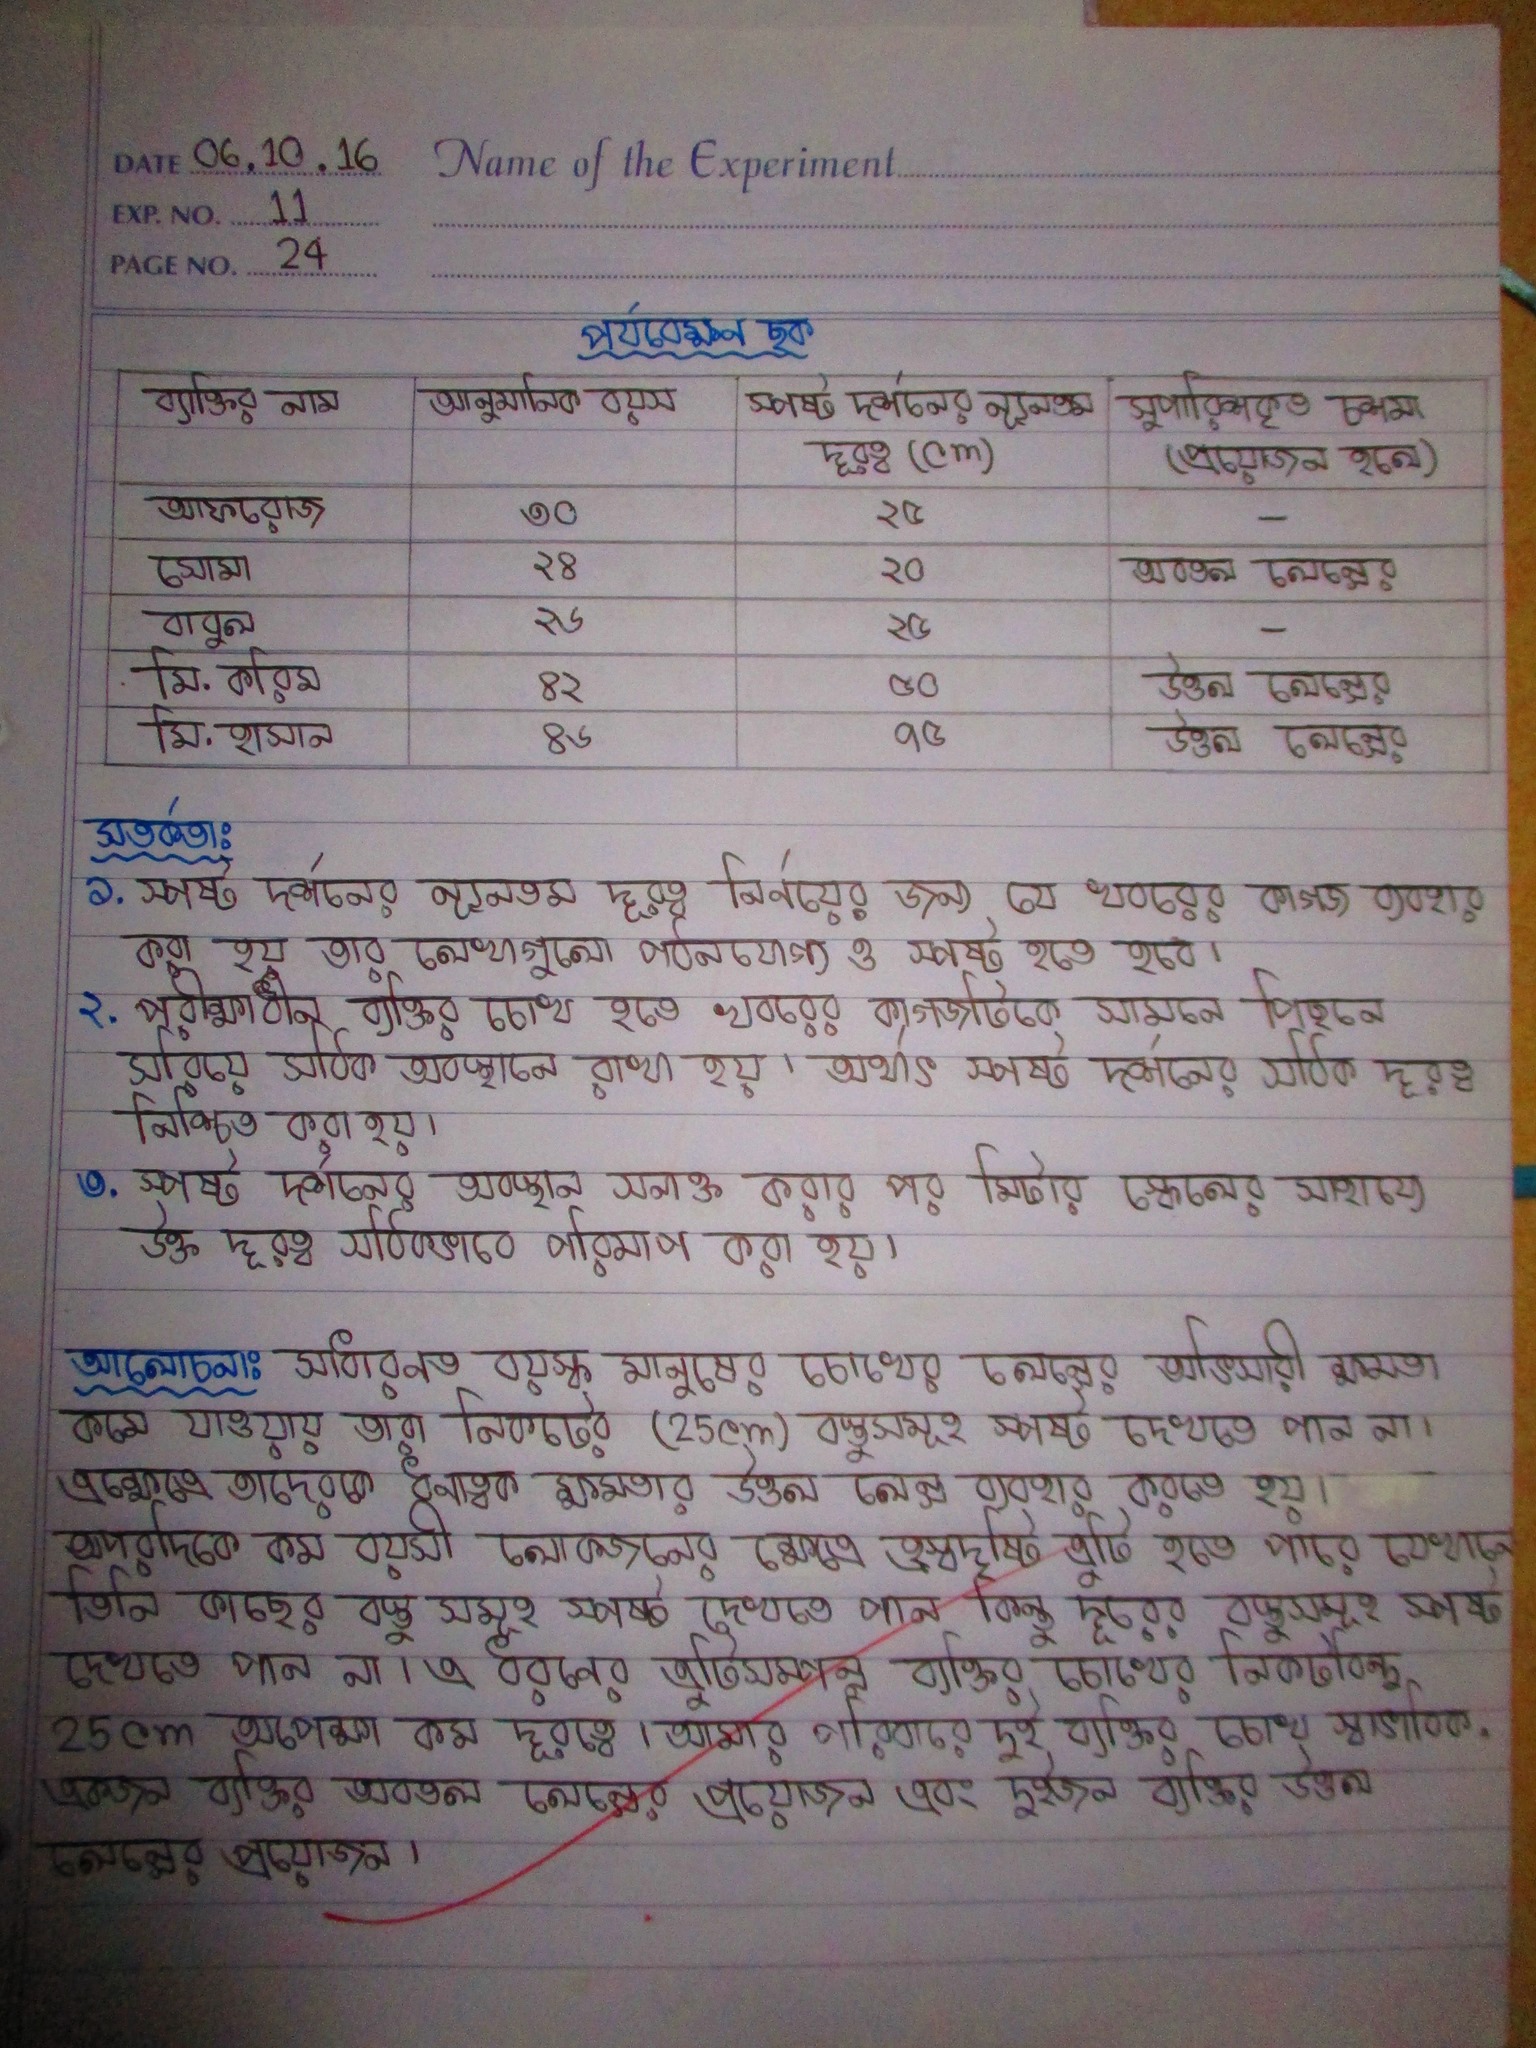 DATE 06.10.16 Name of the Experiment
EXP. NO. 11
PAGE NO. 24
পর্যবেক্ষন ছক
ব্যক্তির নাম আনুমানিক বয়স স্পষ্ট দর্শনের ন্যূনতম দূরত্ব (cm) সুপারিশকৃত চশমা (প্রয়োজন হলে)
আফরোজ ৩০ ২৫ –
সোমা ২৪ ২০ অবতল লেন্সের
বাবুল ২৬ ২৫ –
মি. করিম ৪২ ৫০ উত্তল লেন্সের
মি. হাসান ৪৬ ৭৫ উত্তল লেন্সের
সতর্কতাঃ
১. স্পষ্ট দর্শনের ন্যূনতম দূরত্ব নির্নয়ের জন্য যে খবরের কাগজ ব্যবহার
করা হয় তার লেখাগুলো পঠনযোগ্য ও স্পষ্ট হতে হবে।
২. পরীক্ষাধীন ব্যক্তির চোখ হতে খবরের কাগজটিকে সামনে পিছনে
সরিয়ে সঠিক অবস্থানে রাখা হয়। অর্থাৎ স্পষ্ট দর্শনের সঠিক দূরত্ব
নিশ্চিত করা হয়।
৩. স্পষ্ট দর্শনের অবস্থান সনাক্ত করার পর মিটার স্কেলের সাহায্যে
উক্ত দূরত্ব সঠিকভাবে পরিমাপ করা হয়।
আলোচনাঃ সাধারনত বয়স্ক মানুষের চোখের লেন্সের অভিসারী ক্ষমতা
কমে যাওয়ায় তারা নিকটের (25cm) বস্তুসমূহ স্পষ্ট দেখতে পান না।
এক্ষেত্রে তাদেরকে ধনাত্বক ক্ষমতার উত্তল লেন্স ব্যবহার করতে হয়।
অপরদিকে কম বয়সী লোকজনের ক্ষেত্রে হ্রস্বদৃষ্টি ত্রুটি হতে পারে যেখানে
তিনি কাছের বস্তু সমূহ স্পষ্ট দেখতে পান কিন্তু দূরের বস্তুসমূহ স্পষ্ট
দেখতে পান না। এ ধরনের ত্রুটিসম্পন্ন ব্যক্তির চোখের নিকটবিন্দু
25cm অপেক্ষা কম দূরত্বে। আমার পরিবারে দুই ব্যক্তির চোখ স্বাভাবিক.
একজন ব্যক্তির অবতল লেন্সের প্রয়োজন এবং দুইজন ব্যক্তির উত্তল
লেন্সের প্রয়োজন।